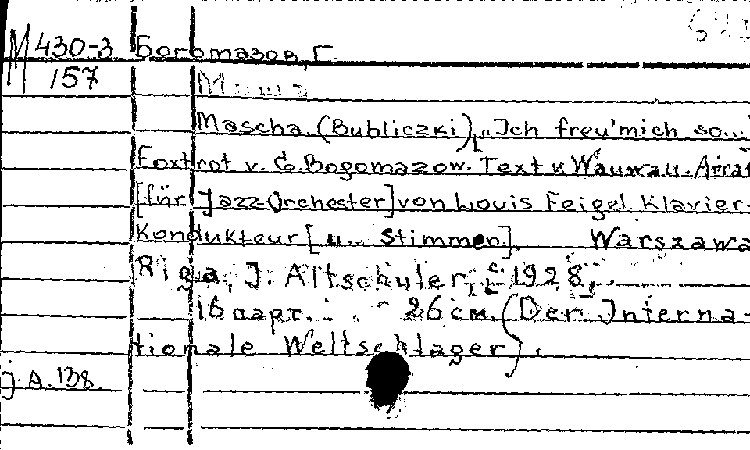 М 430-3 Богомазов, Г.
157
Маша
Mascha (Bubliczki) „Ich freu' mich so...
Foxtrot v. G. Bogomazow. Text v. Wauwau. Arran
[für Jazz-Orchester] von Louis Feigel. Klavier-
Kondukteur [u. Stimmen]. Warszawa
Riga, J. Altschuler, c 1928.
16 парт. 26 см. (Der Interna-
tionale Weltschlager).
J.A.138.